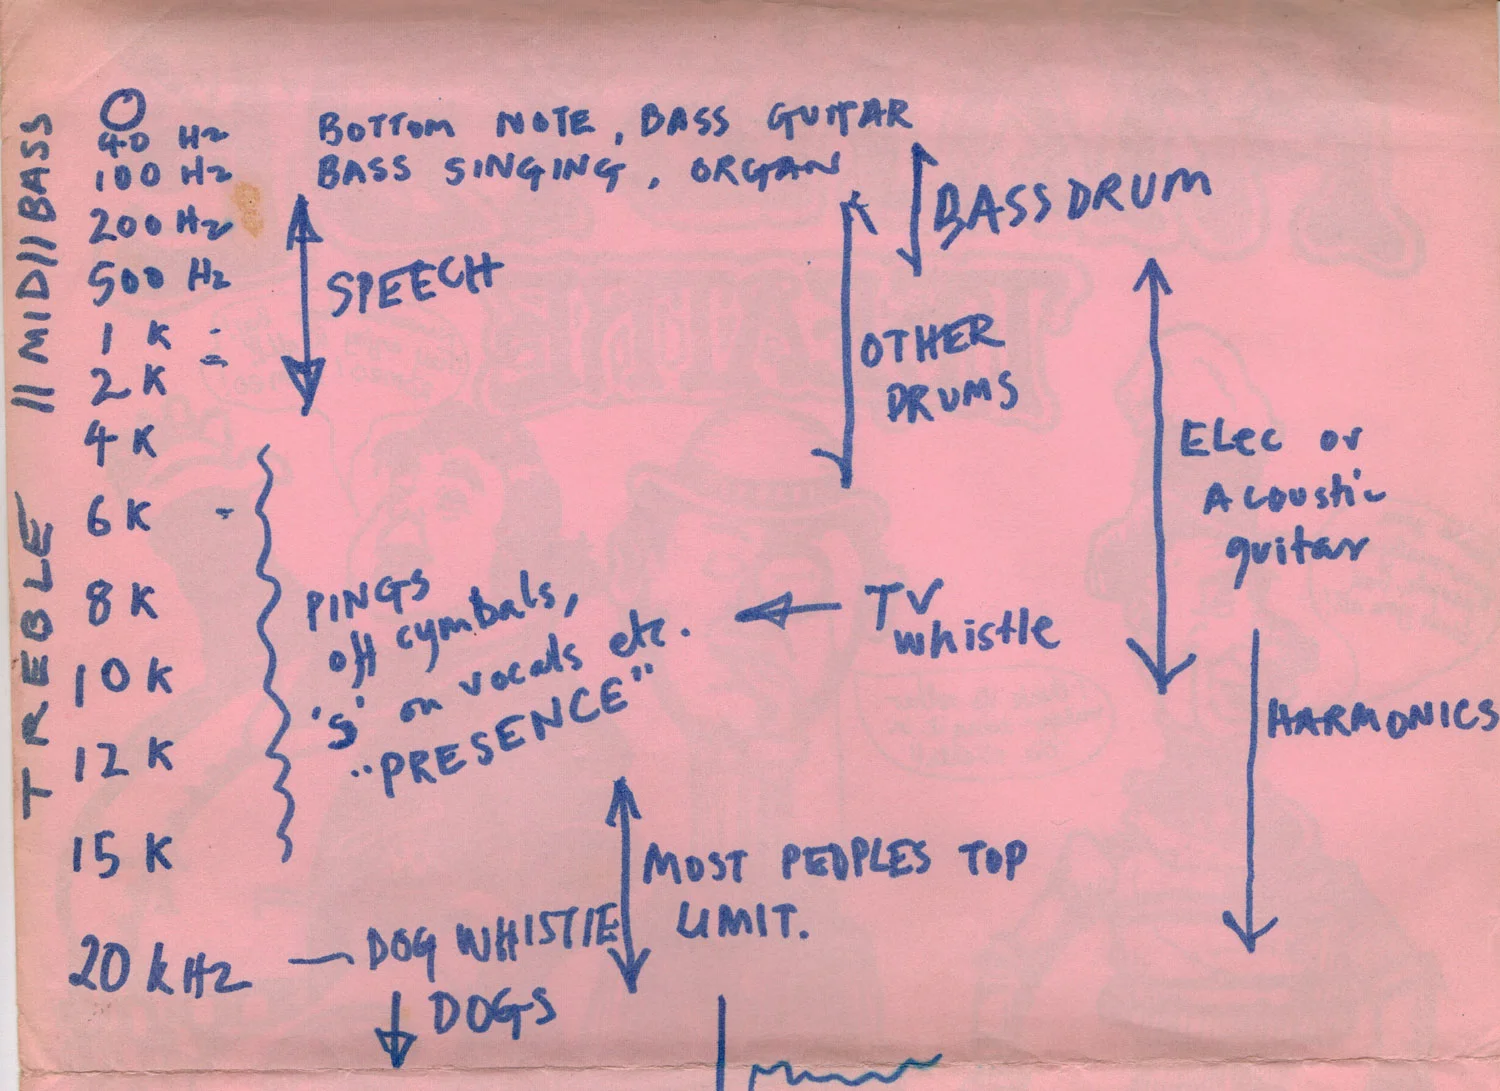 O
40 Hz BOTTOM NOTE, BASS GUITAR
100 Hz BASS SINGING, ORGAN
200 Hz
500 Hz
1 K
2 K
4 K
6 K
8 K
10 K
12 K
15 K
20 kHz — DOG WHISTLE
DOGS
BASS // MID // TREBLE
SPEECH
BASS DRUM
OTHER
DRUMS
Elec or
Acoustic
guitar
PINGS
off cymbals,
's' on vocals etc.
"PRESENCE"
TV
whistle
HARMONICS
MOST PEOPLES TOP
LIMIT.